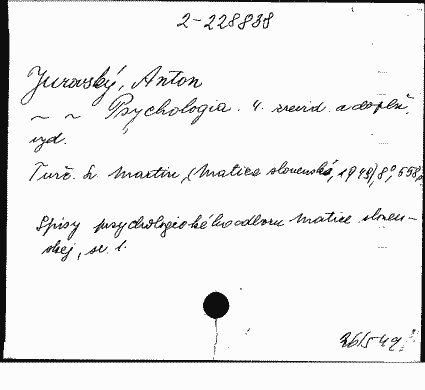 2-228838
Jurovský, Anton
~ ~ Psychologia. 4. revid. a doplň.
vyd.
Turč. Sv. Martin, (Matica slovenská, 1949), 8°, 558
Spisy psychologického odboru Matice sloven-
skej, sv. 1.